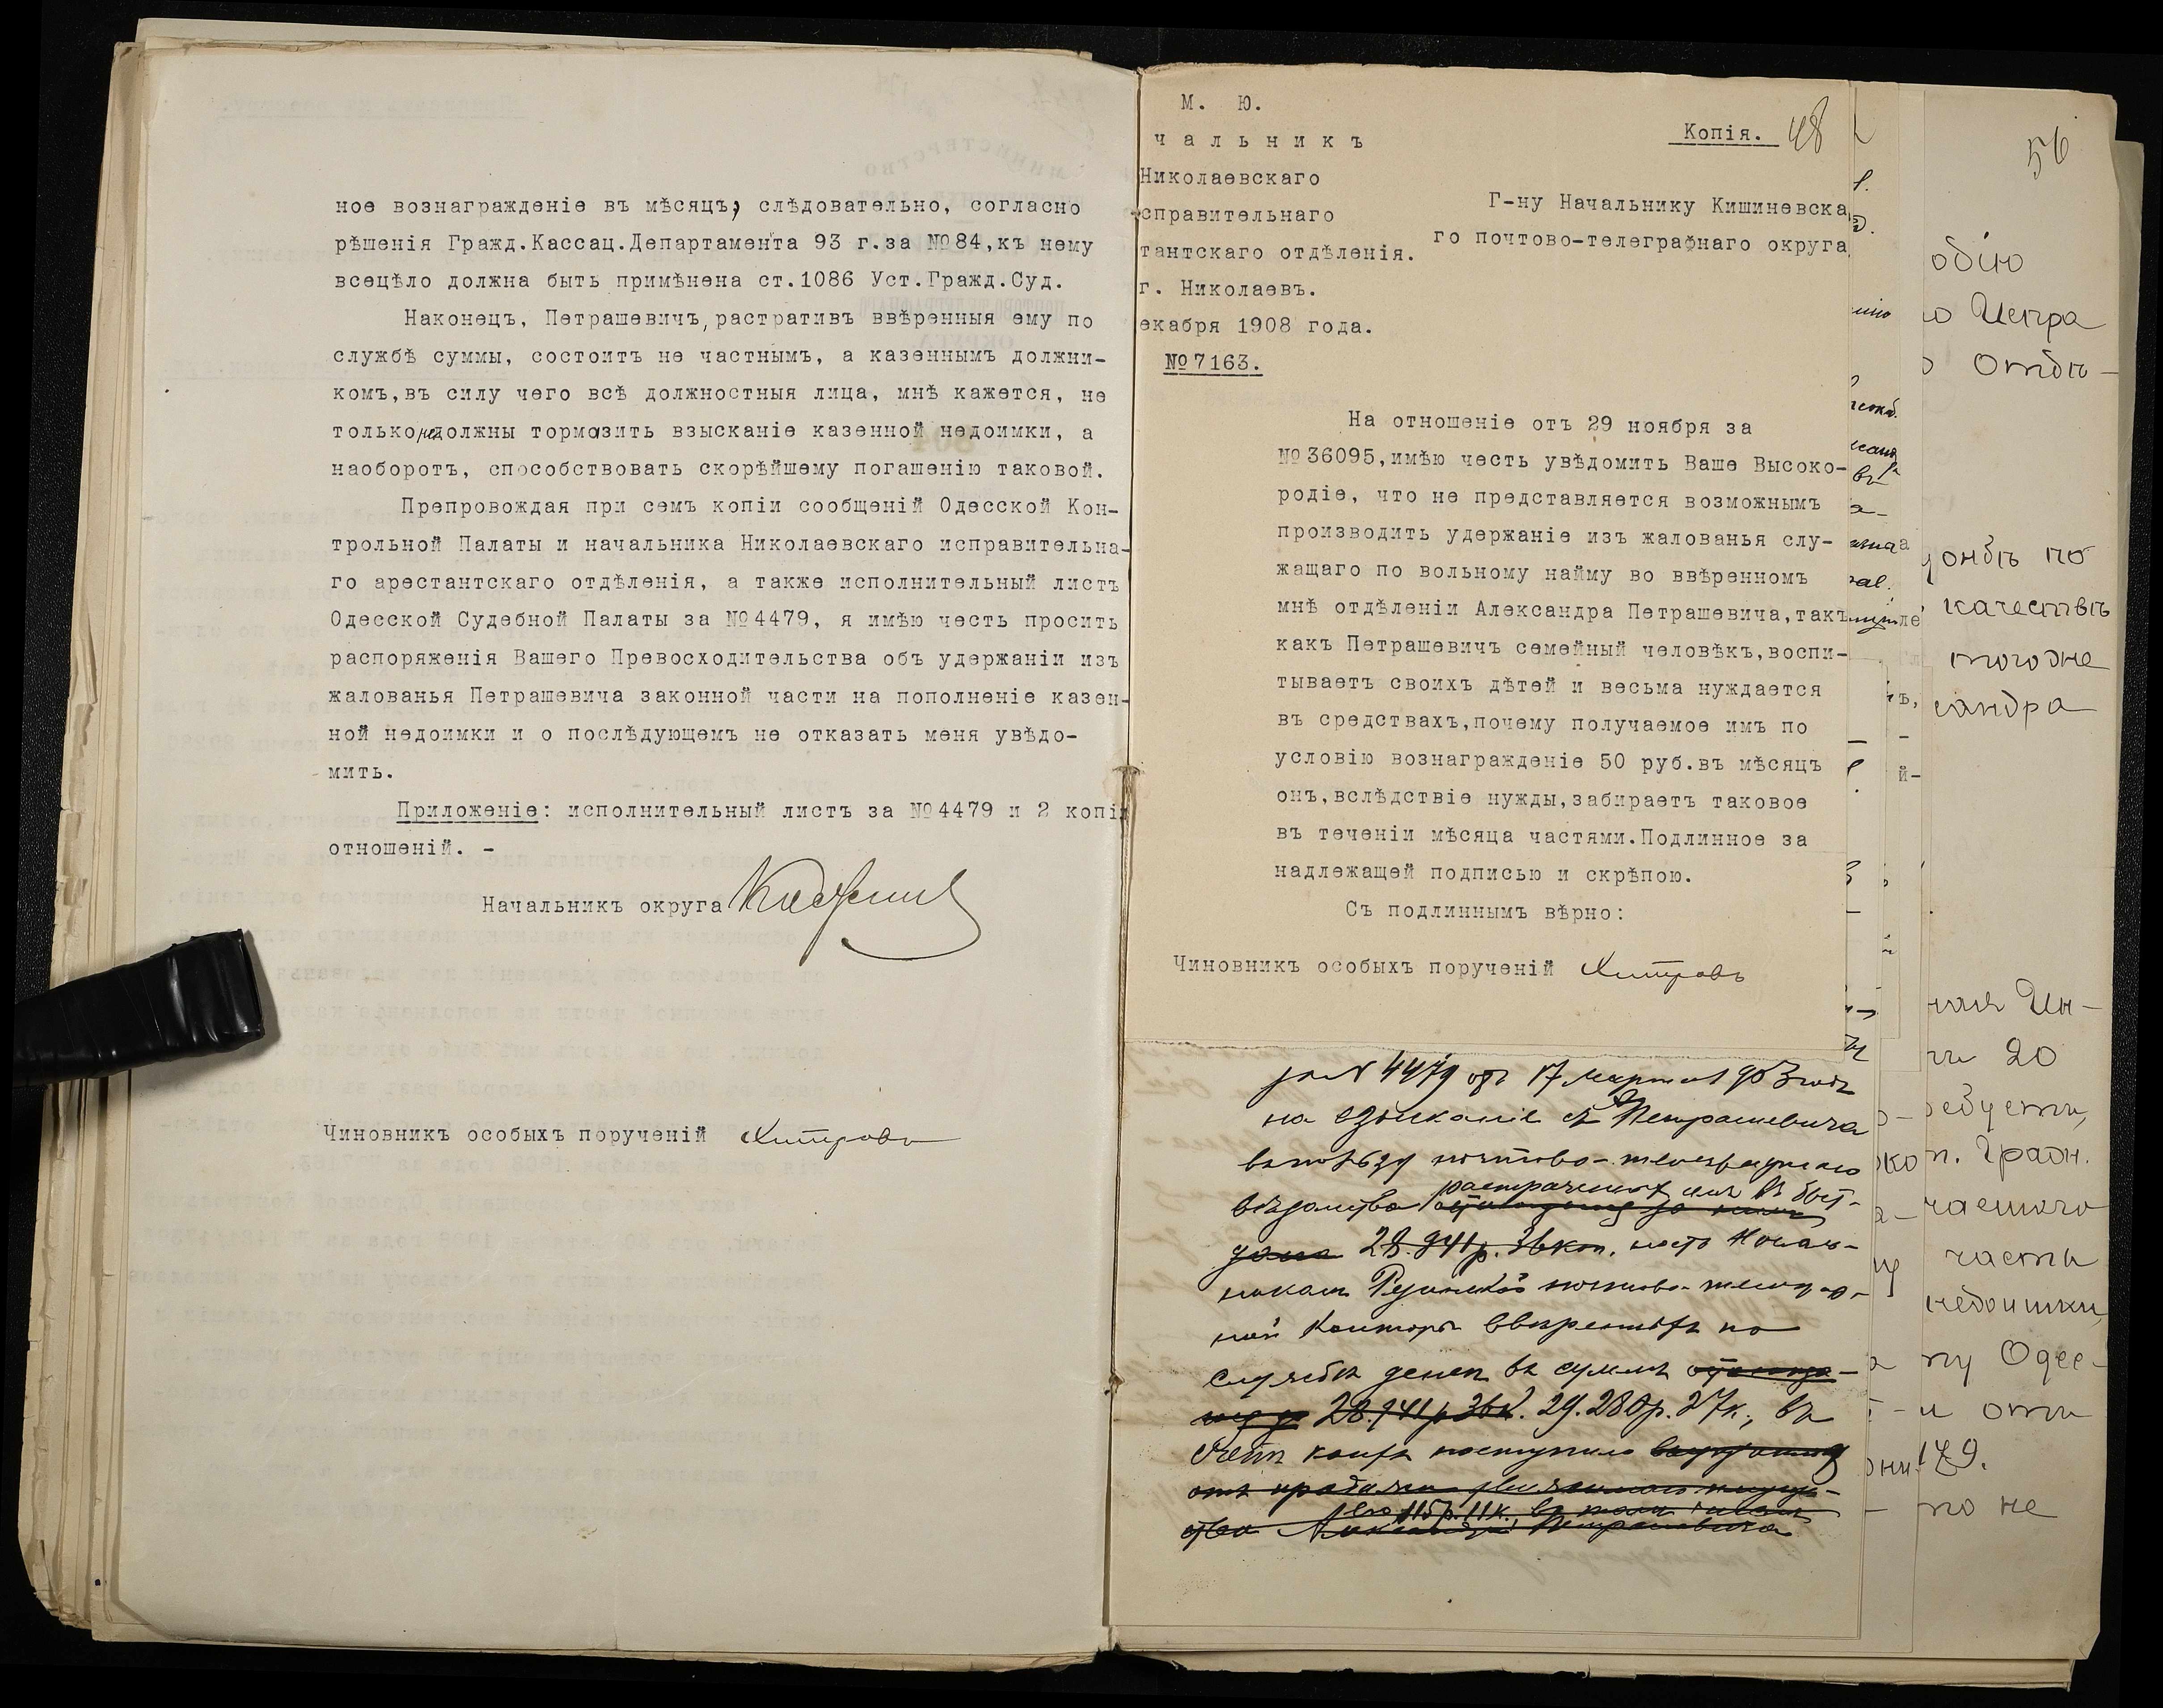 ное вознагражденіе въ мѣсяцъ; слѣдовательно, согласно
рѣшенія Гражд.Кассац.Департамента 93 г.за №84,къ нему
всецѣло должна быть примѣнена ст.1086 Уст.Гражд.Суд.
Наконецъ, Петрашевичъ, растративъ ввѣренныя ему по
службѣ суммы, состоитъ не частнымъ, а казеннымъ должни-
комъ,въ силу чего всѣ должностныя лица, мнѣ кажется, не
только не должны тормозить взысканіе казенной недоимки, а
наоборотъ, способствовать скорѣйшему погашенію таковой.
Препровождая при семъ копіи сообщеній Одесской Кон-
трольной Палаты и начальника Николаевскаго исправительна-
го арестантскаго отдѣленія, а также исполнительный листъ
Одесской Судебной Палаты за №4479, я имѣю честь просить
распоряженія Вашего Превосходительства объ удержаніи изъ
жалованья Петрашевича законной части на пополненіе казен-
ной недоимки и о послѣдующемъ не отказать меня увѣдо-
мить.
Приложеніе: исполнительный листъ за №4479 и 2 копіи
отношеній. -
Начальникъ округа
Чиновникъ особыхъ порученій Хитровъ
М. Ю.
чальникъ
Николаевскаго
справительнаго
тантскаго отдѣленія.
г. Николаевъ.
екабря 1908 года.
№7163.
Копія. 48
Г-ну Начальнику Кишиневска
го почтово-телеграфнаго округа
На отношеніе отъ 29 ноября за
№36095,имѣю честь увѣдомить Ваше Высоко-
родіе, что не представляется возможнымъ
производить удержаніе изъ жалованья слу-
жащаго по вольному найму во ввѣренномъ
мнѣ отдѣленіи Александра Петрашевича,такъ
какъ Петрашевичъ семейный человѣкъ,воспи-
тываетъ своихъ дѣтей и весьма нуждается
въ средствахъ,почему получаемое имъ по
условію вознагражденіе 50 руб.въ мѣсяцъ
онъ,вслѣдствіе нужды,забираетъ таковое
въ теченіи мѣсяца частями.Подлинное за
надлежащей подписью и скрѣпою.
Съ подлиннымъ вѣрно:
Чиновникъ особыхъ порученій Хитровъ
за № 4479 отъ 17 марта 1903 года
на взысканіе съ Петрашевича
въ пользу почтово-телеграфнаго
вѣдомства растраченныхъ имъ въ быт-
28.941р. 36коп. ность Началь-
никомъ почтово-телеграф-
ной Конторы ввѣренныхъ по
службѣ денегъ въ суммѣ
28.941р 36к. 29.280р. 27к., въ
счетъ коихъ поступило
отъ продажи движимаго имуще-
115р. 11к., въ томъ числѣ
ства Александра Петрашевича
56
обію
ю Петра
о Отдѣ-
онѣ по
качествѣ
тогоже
сандра
ная Ин-
20
редует,
п. Гражд.
частаго
части
недоимки,
ту Одес-
и отъ
179.
то не